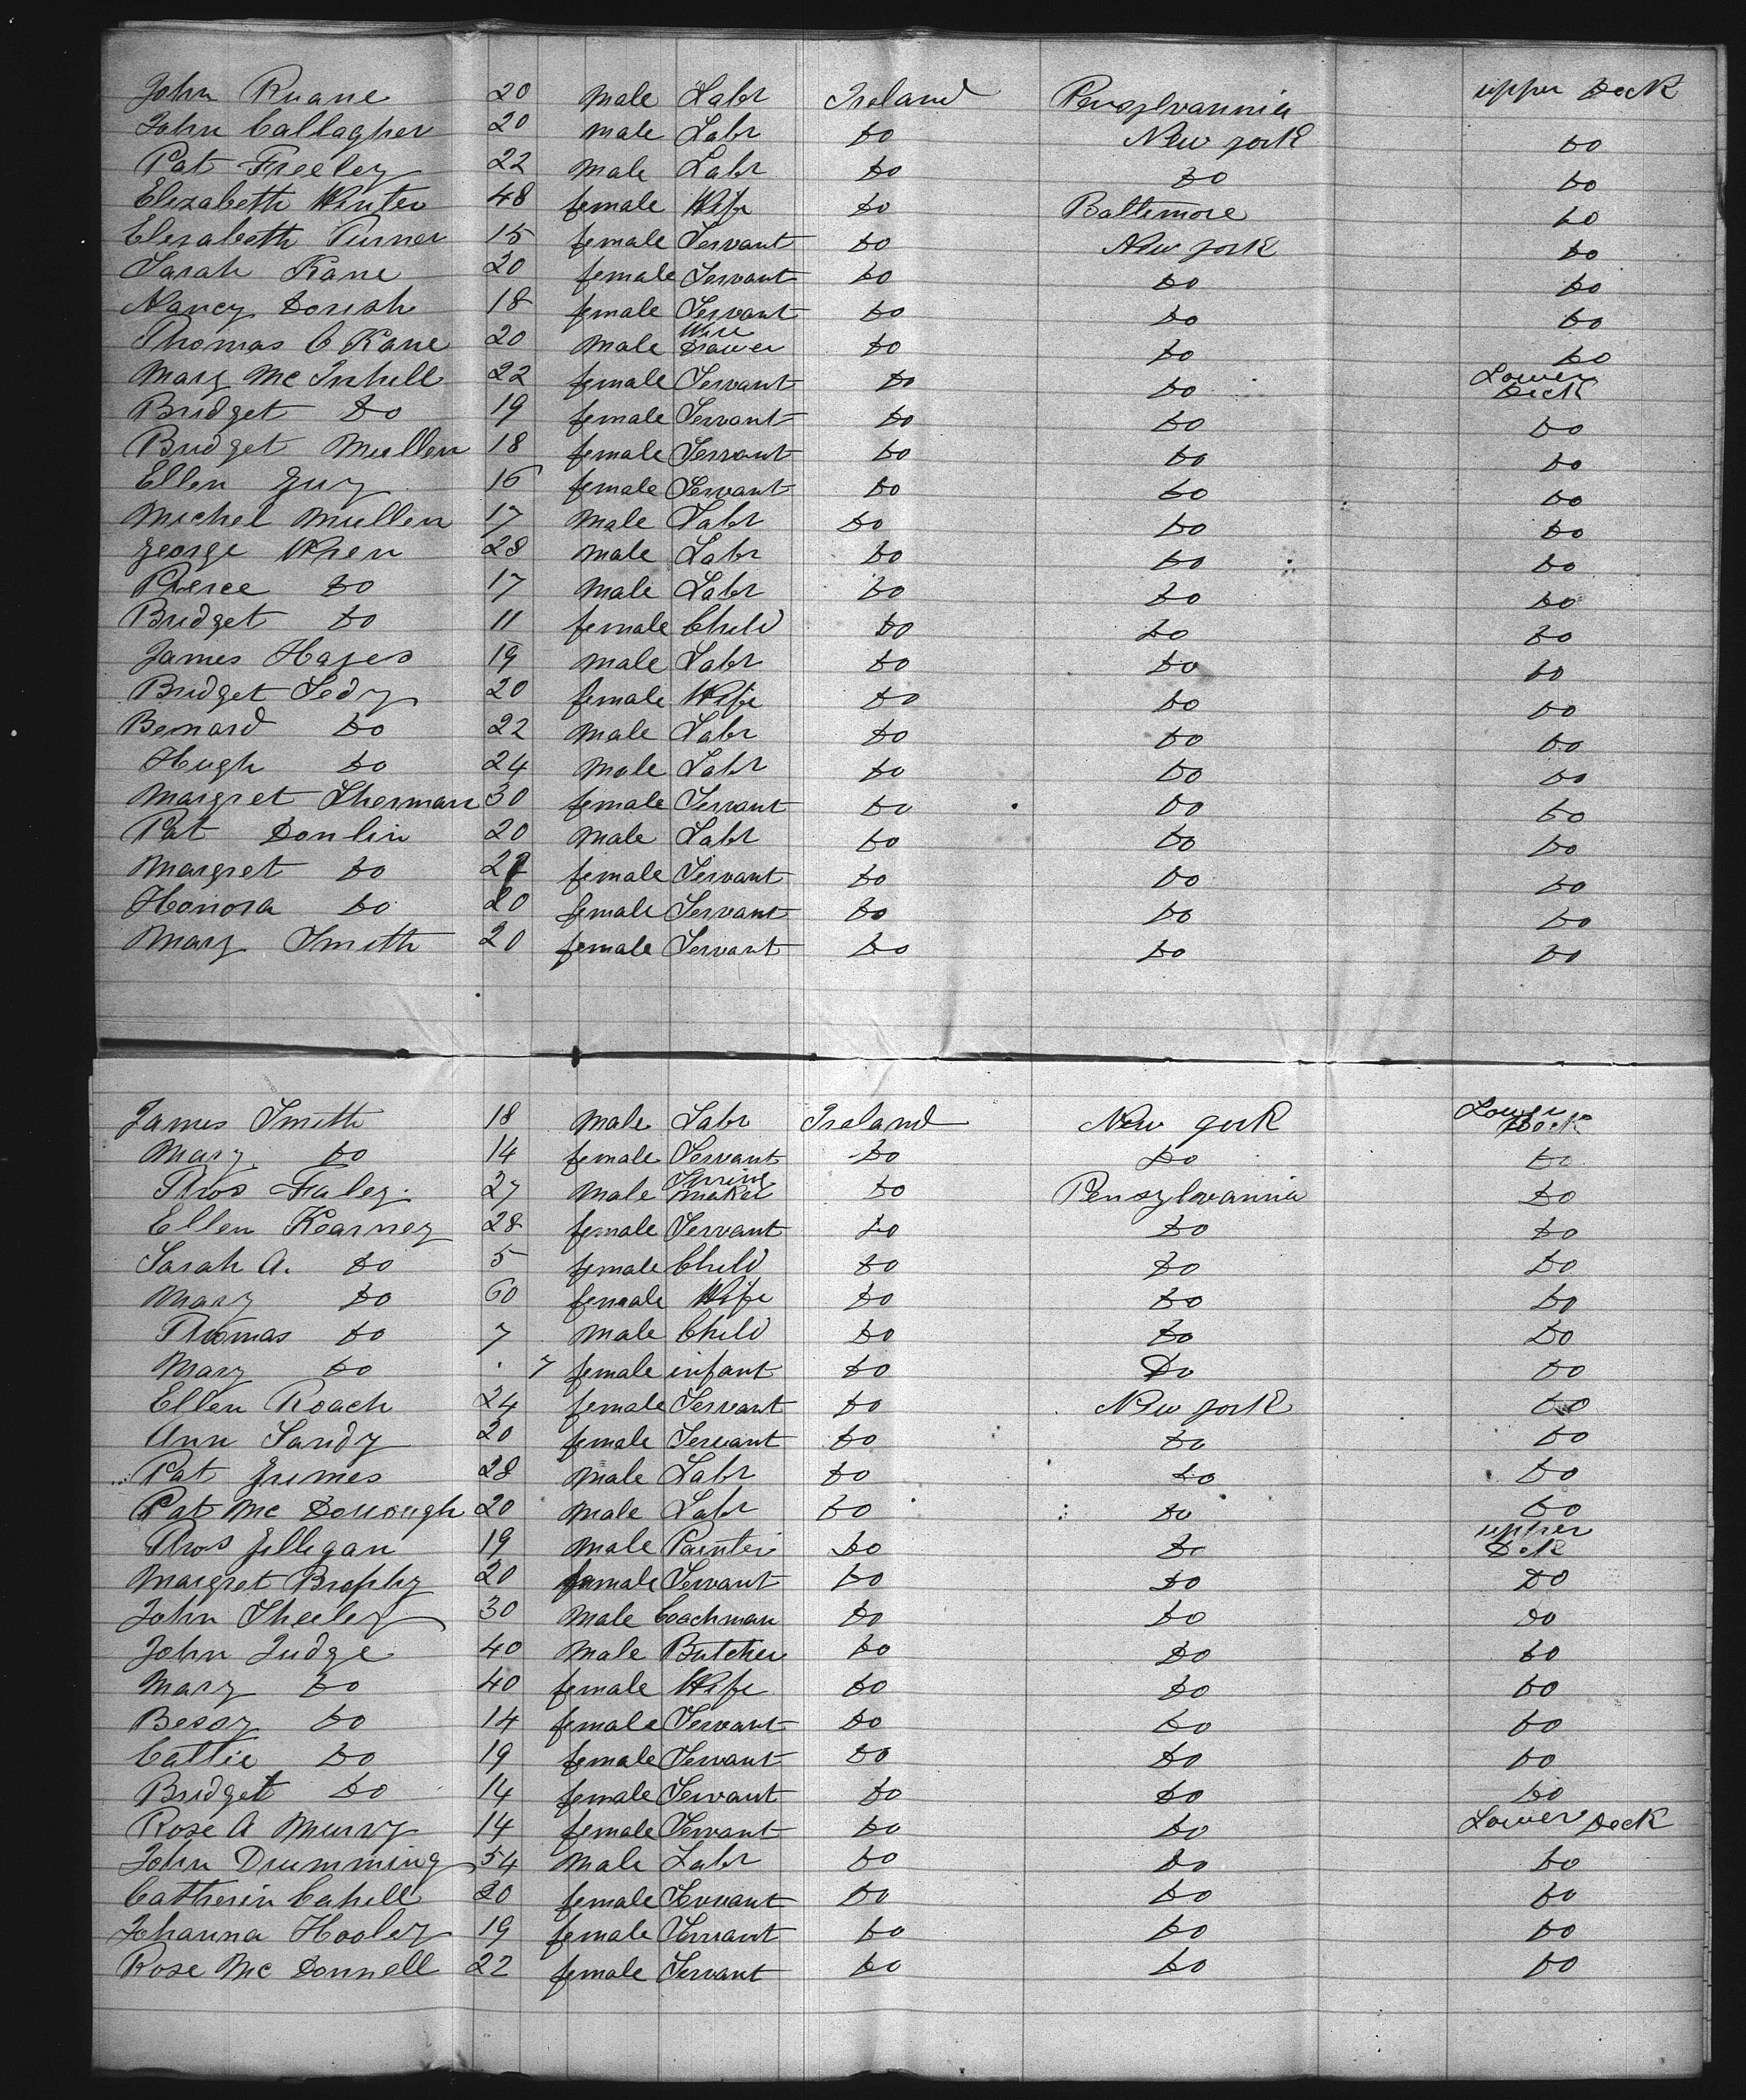 John Ruane 20 male Labr Ireland Pensylvannia upper Deck
John Callagher 20 male Labr Do New york Do
Pat Freeley 22 male Labr Do Do Do
Elezabeth Winter 48 female Wife Do Baltimore Do
Elesabeth Turner 15 female Servant Do New york Do
Sarah Kane 20 female Servant Do Do Do
Nancy Dorish 18 female Servant Do Do Do
Thomas O Kane 20 male Wire Drawer Do Do Do
Mary Mc Inhill 22 female Servant Do Do Lower Deck
Bridget Do 19 female Servant Do Do Do
Bridget Mullen 18 female Servant Do Do Do
Ellen Guy 16 female Servant Do Do Do
Michel Mullen 17 male Labr Do Do Do
George Wren 28 male Labr Do Do Do
Pierce Do 17 male Labr Do Do Do
Bridget Do 11 female Child Do Do Do
James Hayes 19 male Labr Do Do Do
Bridget Ledy 20 female Wife Do Do Do
Bernard Do 22 male Labr Do Do Do
Hugh Do 24 male Labr Do Do Do
Margret Sherman 30 female Servant Do Do Do
Pat Donlin 20 male Labr Do Do Do
Margret Do female Servant Do Do Do
Honora Do 20 female Servant Do Do Do
Mary Smith 20 female Servant Do Do Do
James Smith 18 male Labr Ireland New york Lower Deck
Mary Do 14 female Servant Do Do Do
Thos Faley 27 male maker Do Pensylvannia Do
Ellen Kearney 28 female Servant Do Do Do
Sarah A. Do 5 female Child Do Do Do
Mary Do 60 female Wife Do Do Do
Thomas Do 7 male Child Do Do Do
Mary Do 7 female infant Do Do Do
Ellen Roach 24 female Servant Do New york Do
Ann Sandy 20 female Servant Do Do Do
Pat Grimes 28 male Labr Do Do Do
Pat Mc Donough 20 male Labr Do Do Do
Thos Gilligan 19 male Painter Do Do upper Dek
Margret Brophy 20 female Servant Do Do Do
John Sheeley 30 male Coachman Do Do Do
John Judge 40 male Butcher Do Do Do
Mary Do 40 female Wife Do Do Do
Bessy Do 14 female Servant Do Do Do
Cattie Do 19 female Servant Do Do Do
Bridget Do 14 female Servant Do Do Do
Rose A Murry 14 female Servant Do Do Lower Deck
John Drumming 54 male Labr Do Do Do
Catherin Cahill 20 female Servant Do Do Do
Johanna Hooley 19 female Servant Do Do Do
Rose Mc Donnell 22 female Servant Do Do Do